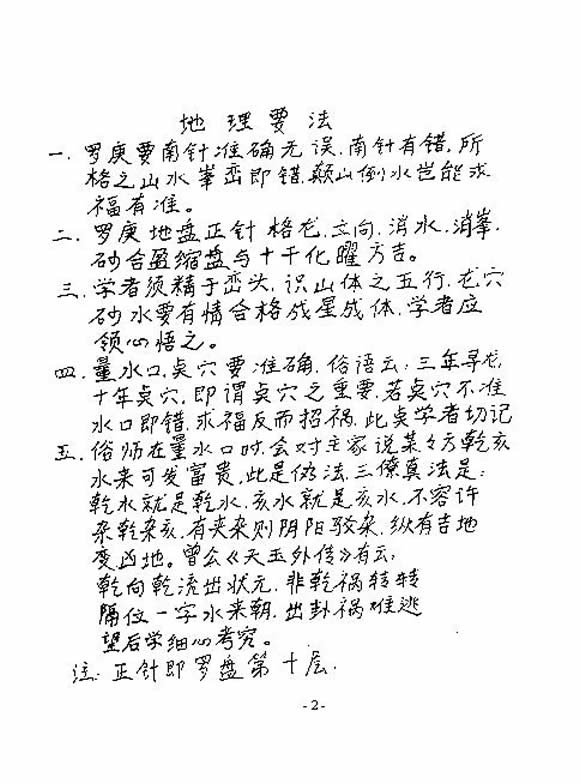 地理要法
一.罗庚要南针准确无误.南针有错.所
格之山水峯峦即错.颠山倒水岂能求
福有准。
二.罗庚地盘正针格龙.立向.消水.消峯.
砂合盈缩盘与十干化曜方吉。
三.学者须精于峦头.识山体之五行.龙穴
砂水要有情合格成星成体.学者应
领心悟之。
四.量水口.奌穴要准确.俗语云:三年寻龙,
十年奌穴,即谓奌穴之重要.若奌穴不准
水口即错.求福反而招祸.此奌学者切记
五.俗师在量水口时.会对主家说某々方乾亥
水来可发富贵.此是伪法.三僚真法是:
乾水就是乾水.亥水就是亥水.不容许
杂乾杂亥.有夹杂则阴阳驳杂.纵有吉地
变凶地。曾公《天玉外传》有云:
乾向乾流出状元.非乾祸转转
隔位一字水来朝.出卦祸难逃
望后学细心考究。
注:正针即罗盘第十层.
-2-